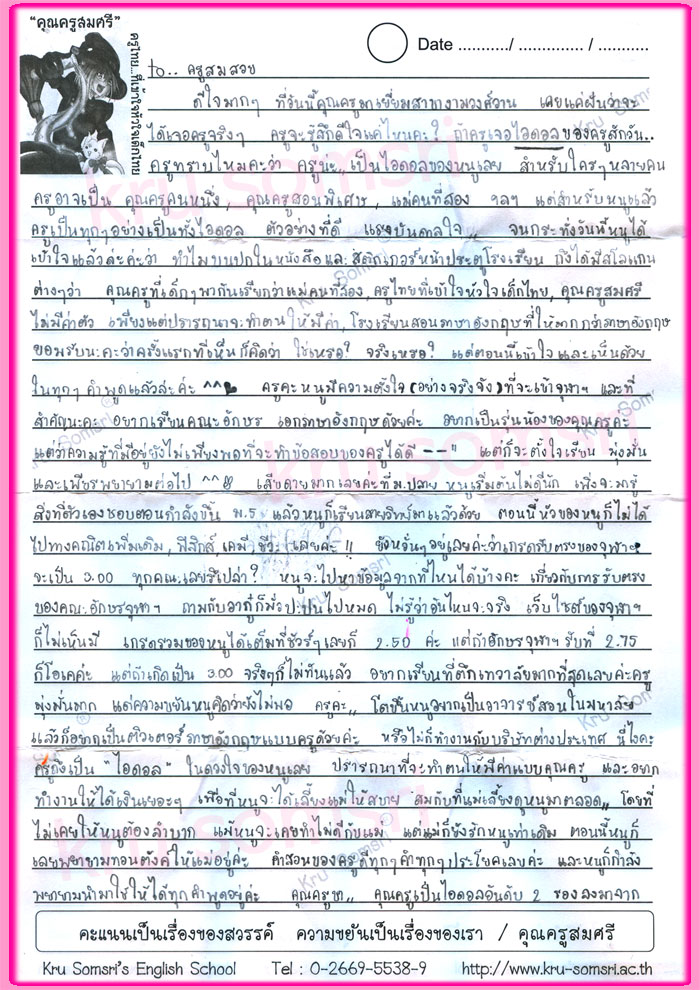 "คุณครูสมศรี"
ครูไทย...ที่เข้าใจหัวใจเด็กไทย
Date .........../ .............. / ...........
to.. ครูสมสอย
ดีใจมากๆ ที่วันนี้คุณครูมาเยี่ยมสาขางามวงศ์วาน เคยแค่ฝันว่าจะ
ได้เจอครูจริงๆ ครูจะรู้สึกดีใจแค่ไหนคะ? ถ้าครูเจอไอดอลของครูสักวัน..
ครูทราบไหมคะว่า ครูนะ.. เป็นไอดอลของหนูเลย สำหรับใครๆหลายคน
ครูอาจเป็น คุณครูคนหนึ่ง, คุณครูสอนพิเศษ, แม่คนที่สอง ฯลฯ แต่สำหรับหนูแล้ว
ครูเป็นทุกๆอย่างเป็นทั้งไอดอล ตัวอย่างที่ดี แรงบันดาลใจ ,, จนกระทั่งวันนี้หนูได้
เข้าใจแล้วล่ะค่ะว่า ทำไมบนปกในหนังสือและสติกเกอร์หน้าประตูโรงเรียน ถึงได้มีสโลแกน
ต่างๆว่า คุณครูที่เด็กๆพากันเรียกว่าแม่คนที่สอง, ครูไทยที่เข้าใจหัวใจเด็กไทย, คุณครูสมศรี
ไม่มีค่าตัว เพียงแต่ปรารถนาจะทำตนให้มีค่า, โรงเรียนสอนภาษาอังกฤษที่ให้มากกว่าภาษาอังกฤษ
ยอมรับนะคะว่าครั้งแรกที่เห็นก็คิดว่า ใช่เหรอ? จริงเหรอ? แต่ตอนนี้เข้าใจและเห็นด้วย
ในทุกๆคำพูดแล้วล่ะค่ะ ^^ ครูคะหนูมีความตั้งใจ (อย่างจริงจัง) ที่จะเข้าจุฬาฯ และที่
สำคัญนะคะ อยากเรียนคณะอักษร เอกภาษาอังกฤษด้วยค่ะ อยากเป็นรุ่นน้องของคุณครูคะ
แต่ว่าความรู้ที่มีอยู่ยังไม่เพียงพอที่จะทำข้อสอบของครูได้ดี --" แต่ก็จะตั้งใจเรียน มุ่งมั่น
และเพียรพยายามต่อไป ^^ เสียดายมากเลยค่ะที่ม.ปลาย หนูเริ่มต้นไม่ดีนัก เพิ่งจะมารู้
สิ่งที่ตัวเองชอบตอนกำลังขึ้น ม.5 แล้วหนูก็เรียนสายวิทย์มาแล้วด้วย ตอนนี้หัวของหนูก็ไม่ได้
ไปทางคณิตเพิ่มเติม, ฟิสิกส์, เคมี ชีวะ เลยค่ะ !! ยังหวั่นๆอยู่เลยค่ะว่าเกรดรับตรงของจุฬาฯ
จะเป็น 3.00 ทุกคณะเลยรึเปล่า? หนูจะไปหาข้อมูลจากที่ไหนได้บ้างคะ เกี่ยวกับการรับตรง
ของคณะอักษรจุฬาฯ ถามกับอากู๋ก็มั่วปะปนไปหมด ไม่รู้ว่าอันไหนจะจริง เว็บไซต์ของจุฬาฯ
ก็ไม่เห็นมี เกรดรวมของหนูได้เต็มที่ชัวร์ๆเลยก็ 2.50 ค่ะ แต่ถ้าอักษรจุฬาฯรับที่ 2.75
ก็โอเคค่ะ แต่ถ้าเกิดเป็น 3.00 จริงๆก็ไม่ทันแล้ว อยากเรียนที่ตึกเทวาลัยมากที่สุดเลยค่ะครู
มุ่งมั่นมาก แต่ความขยันหนูคิดว่ายังไม่พอ ครูคะ,, โตขึ้นหนูอยากเป็นอาจารย์สอนในมหาลัย
แล้วก็อยากเป็นติวเตอร์ภาษาอังกฤษแบบครูด้วยค่ะ หรือไม่ก็ทำงานกับบริษัทต่างประเทศ นี่ไงคะ
ครูถึงเป็น "ไอดอล" ในดวงใจของหนูเลย ปรารถนาที่จะทำตนให้มีค่าแบบคุณครู และอยาก
ทำงานให้ได้เงินเยอะๆ เพื่อที่หนูจะได้เลี้ยงแม่ให้สบาย สมกับที่แม่เลี้ยงดูหนูมาตลอด,, โดยที่
ไม่เคยให้หนูต้องลำบาก แม้หนูจะเคยทำไม่ดีกับแม่ แต่แม่ก็ยังรักหนูเท่าเดิม ตอนนี้หนูก็
เลยพยายามทอนตังค์ให้แม่อยู่ค่ะ คำสอนของครูดีทุกๆคำทุกๆประโยคเลยค่ะ และหนูก็กำลัง
พยายามนำมาใช้ให้ได้ทุกคำพูดอยู่ค่ะ คุณครูขา,, คุณครูเป็นไอดอลอันดับ 2 รองลงมาจาก
คะแนนเป็นเรื่องของสวรรค์ ความขยันเป็นเรื่องของเรา / คุณครูสมศรี
Kru Somsri's English School Tel : 0-2669-5538-9 http://www.kru-somsri.ac.th